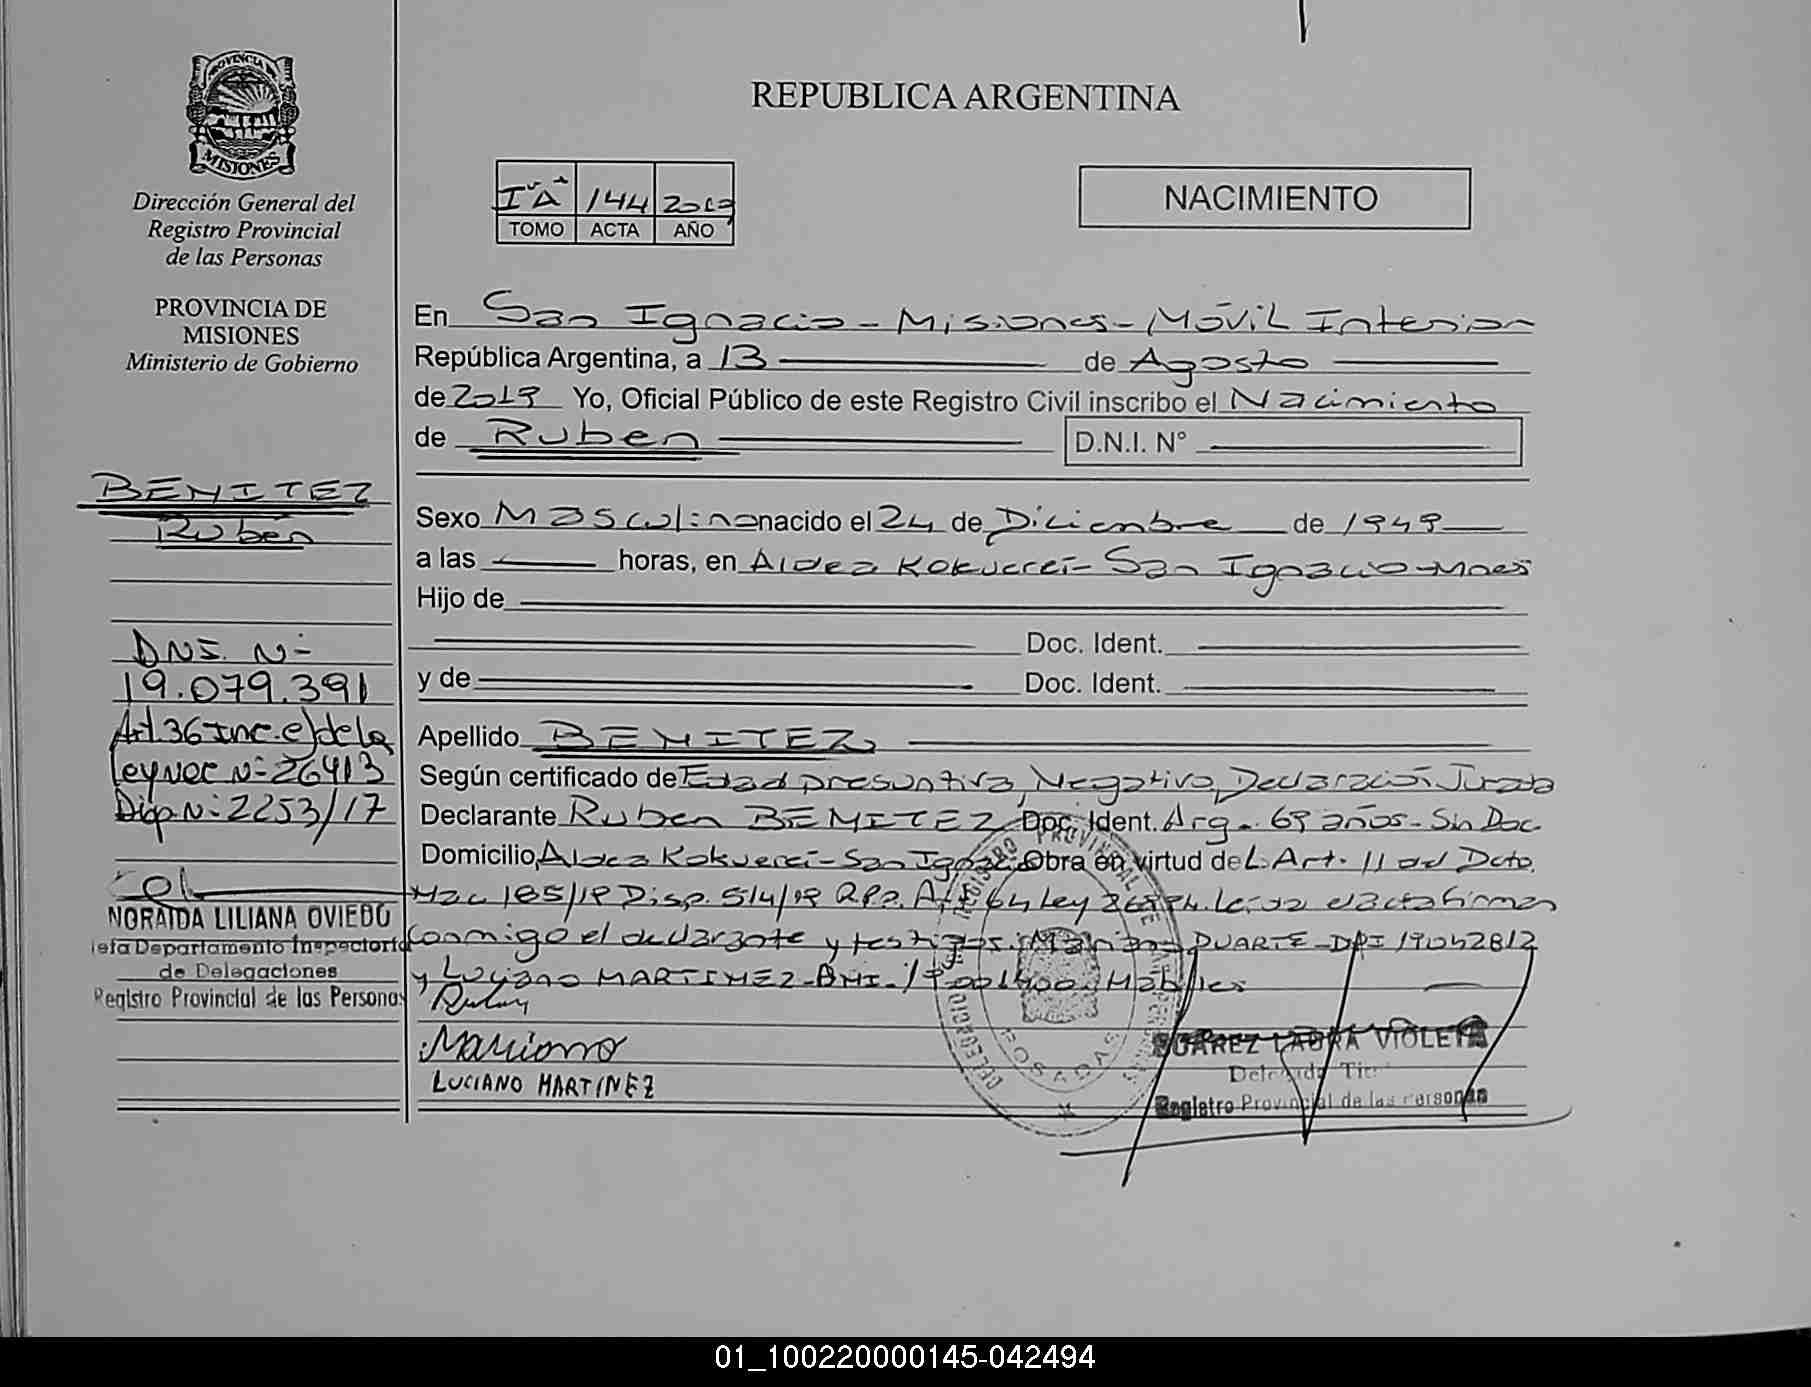 PROVINCIA DE
MISIONES
Dirección General del
Registro Provincial
de las Personas
PROVINCIA DE
MISIONES
Ministerio de Gobierno
BENITEZ
Rubén
DNI. Nº
19.079.391
Art.36 Inc.e) de la
Ley Nac Nº 26413
Disp.Nº 2253/17
NORAIDA LILIANA OVIEDO
Jefa Departamento Inspectoria
de Delegaciones
Registro Provincial de las Personas
REPUBLICA ARGENTINA
144 2019
TOMO ACTA AÑO
NACIMIENTO
En San Ignacio - Misiones - Móvil Interior
República Argentina, a 13 de Agosto
de 2019 Yo, Oficial Público de este Registro Civil inscribo el Nacimiento
de Ruben D.N.I. N°
Sexo Masculino nacido el 24 de Diciembre de 1949
a las horas, en Aldea Kokuereí - San Ignacio - Mnes
Hijo de
Doc. Ident.
y de Doc. Ident.
Apellido BENITEZ
Según certificado de Edad presuntiva, Negativo, Declaración Jurada
Declarante Ruben BENITEZ Doc. Ident. Arg. 69 años - Sin Doc.
Domicilio, Aldea Kokuereí - San Ignac. Obra en virtud de L. Art. 11 del Dcto.
185/19 Disp. 514/19 Art 64 Ley Leida el acta firman
conmigo el declarante y testigos: Mariano DUARTE - DNI 19042812
y Luciano MARTINEZ - DNI. Hábiles
Ruben
Mariano
LUCIANO MARTINEZ
REGISTRO PROVINCIAL DE LAS PERSONAS
POSADAS
SUAREZ LAURA VIOLETA
Delegada Titular
Registro Provincial de las Personas
01_100220000145-042494